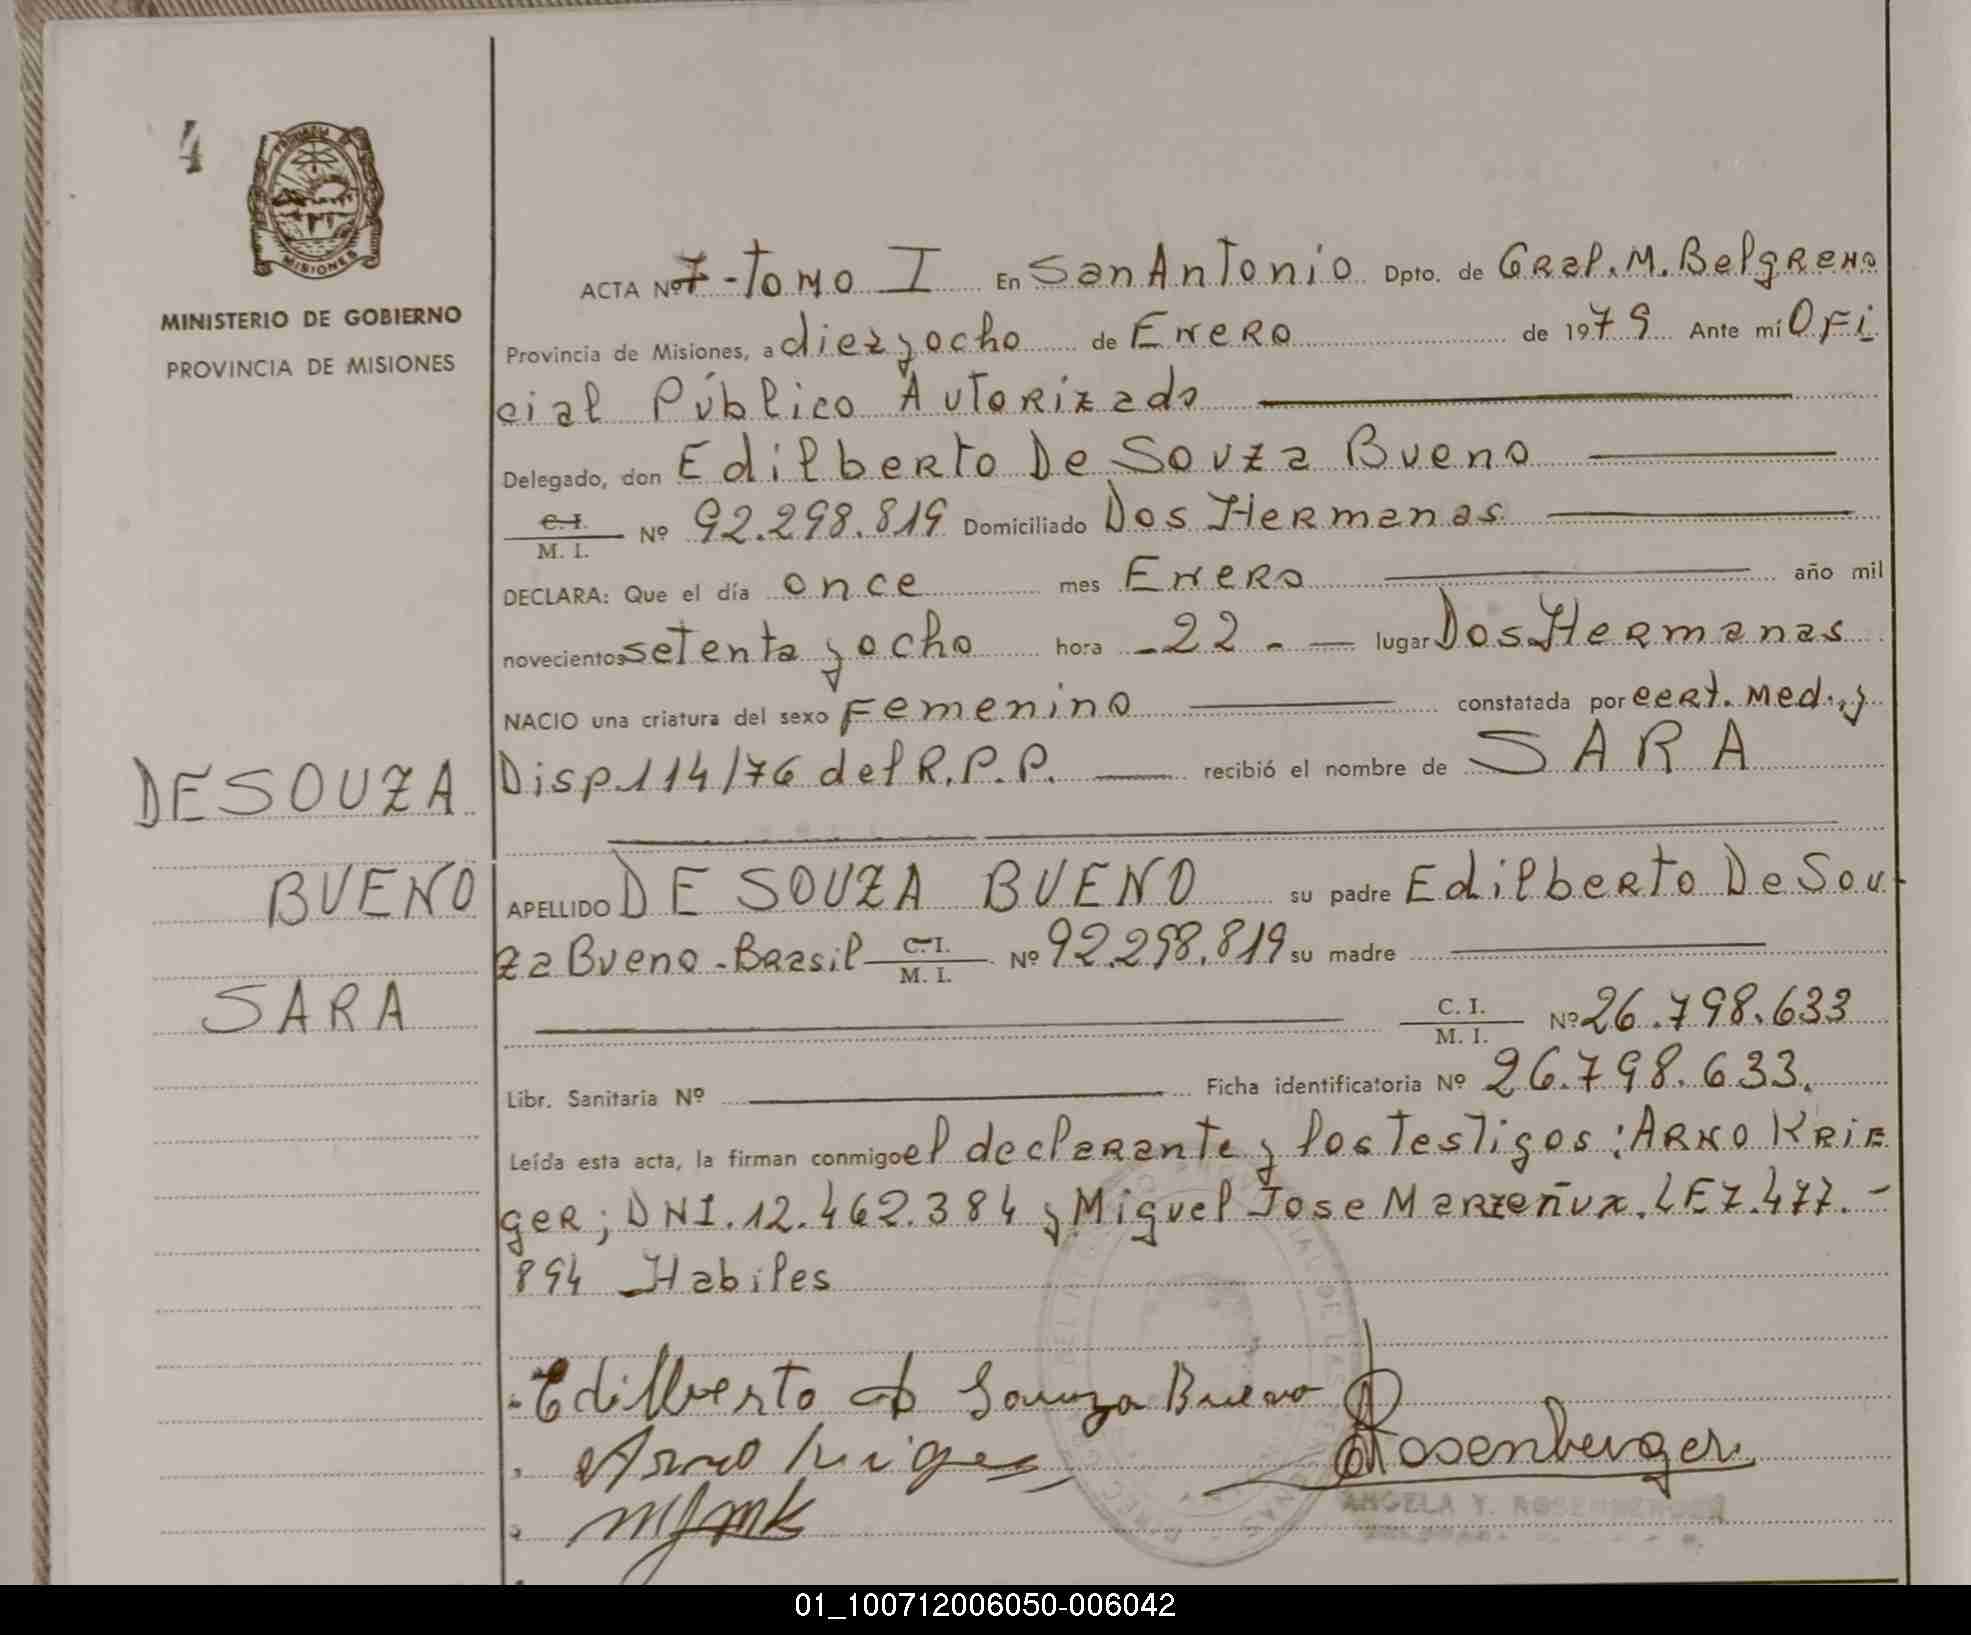 4
PROVINCIA DE
MISIONES
MINISTERIO DE GOBIERNO
PROVINCIA DE MISIONES
DE SOUZA
BUENO
SARA
ACTA Nº 7 - Tomo I En San Antonio Dpto. de Gral. M. Belgrano
Provincia de Misiones, a diez y ocho de Enero de 1979 Ante mí Ofi
cial Público Autorizado
Delegado, don Edilberto De Souza Bueno
C.I. / M. I. Nº 92.298.819 Domiciliado Dos Hermanas
DECLARA: Que el día once mes Enero año mil
novecientos setenta y ocho hora - 22 - lugar Dos Hermanas
NACIO una criatura del sexo Femenino constatada por cert. Med., y
Disp. 114/76 del R.P.P. recibió el nombre de SARA
APELLIDO DE SOUZA BUENO su padre Edilberto De Sou
za Bueno - Brasil C.I. / M. I. Nº 92.298.819 su madre
C. I. / M. I. Nº 26.798.633
Libr. Sanitaria Nº Ficha identificatoria Nº 26.798.633.
Leída esta acta, la firman conmigo el declarante y los Testigos: Arno Krie
ger; DNI. 12.462.384 y Miguel Jose L.E 7.477.-
894 Habiles
Edilberto de Souza Bueno
Arno Rosenberger
ANGELA Y. ROSENBERGER
01_100712006050-006042